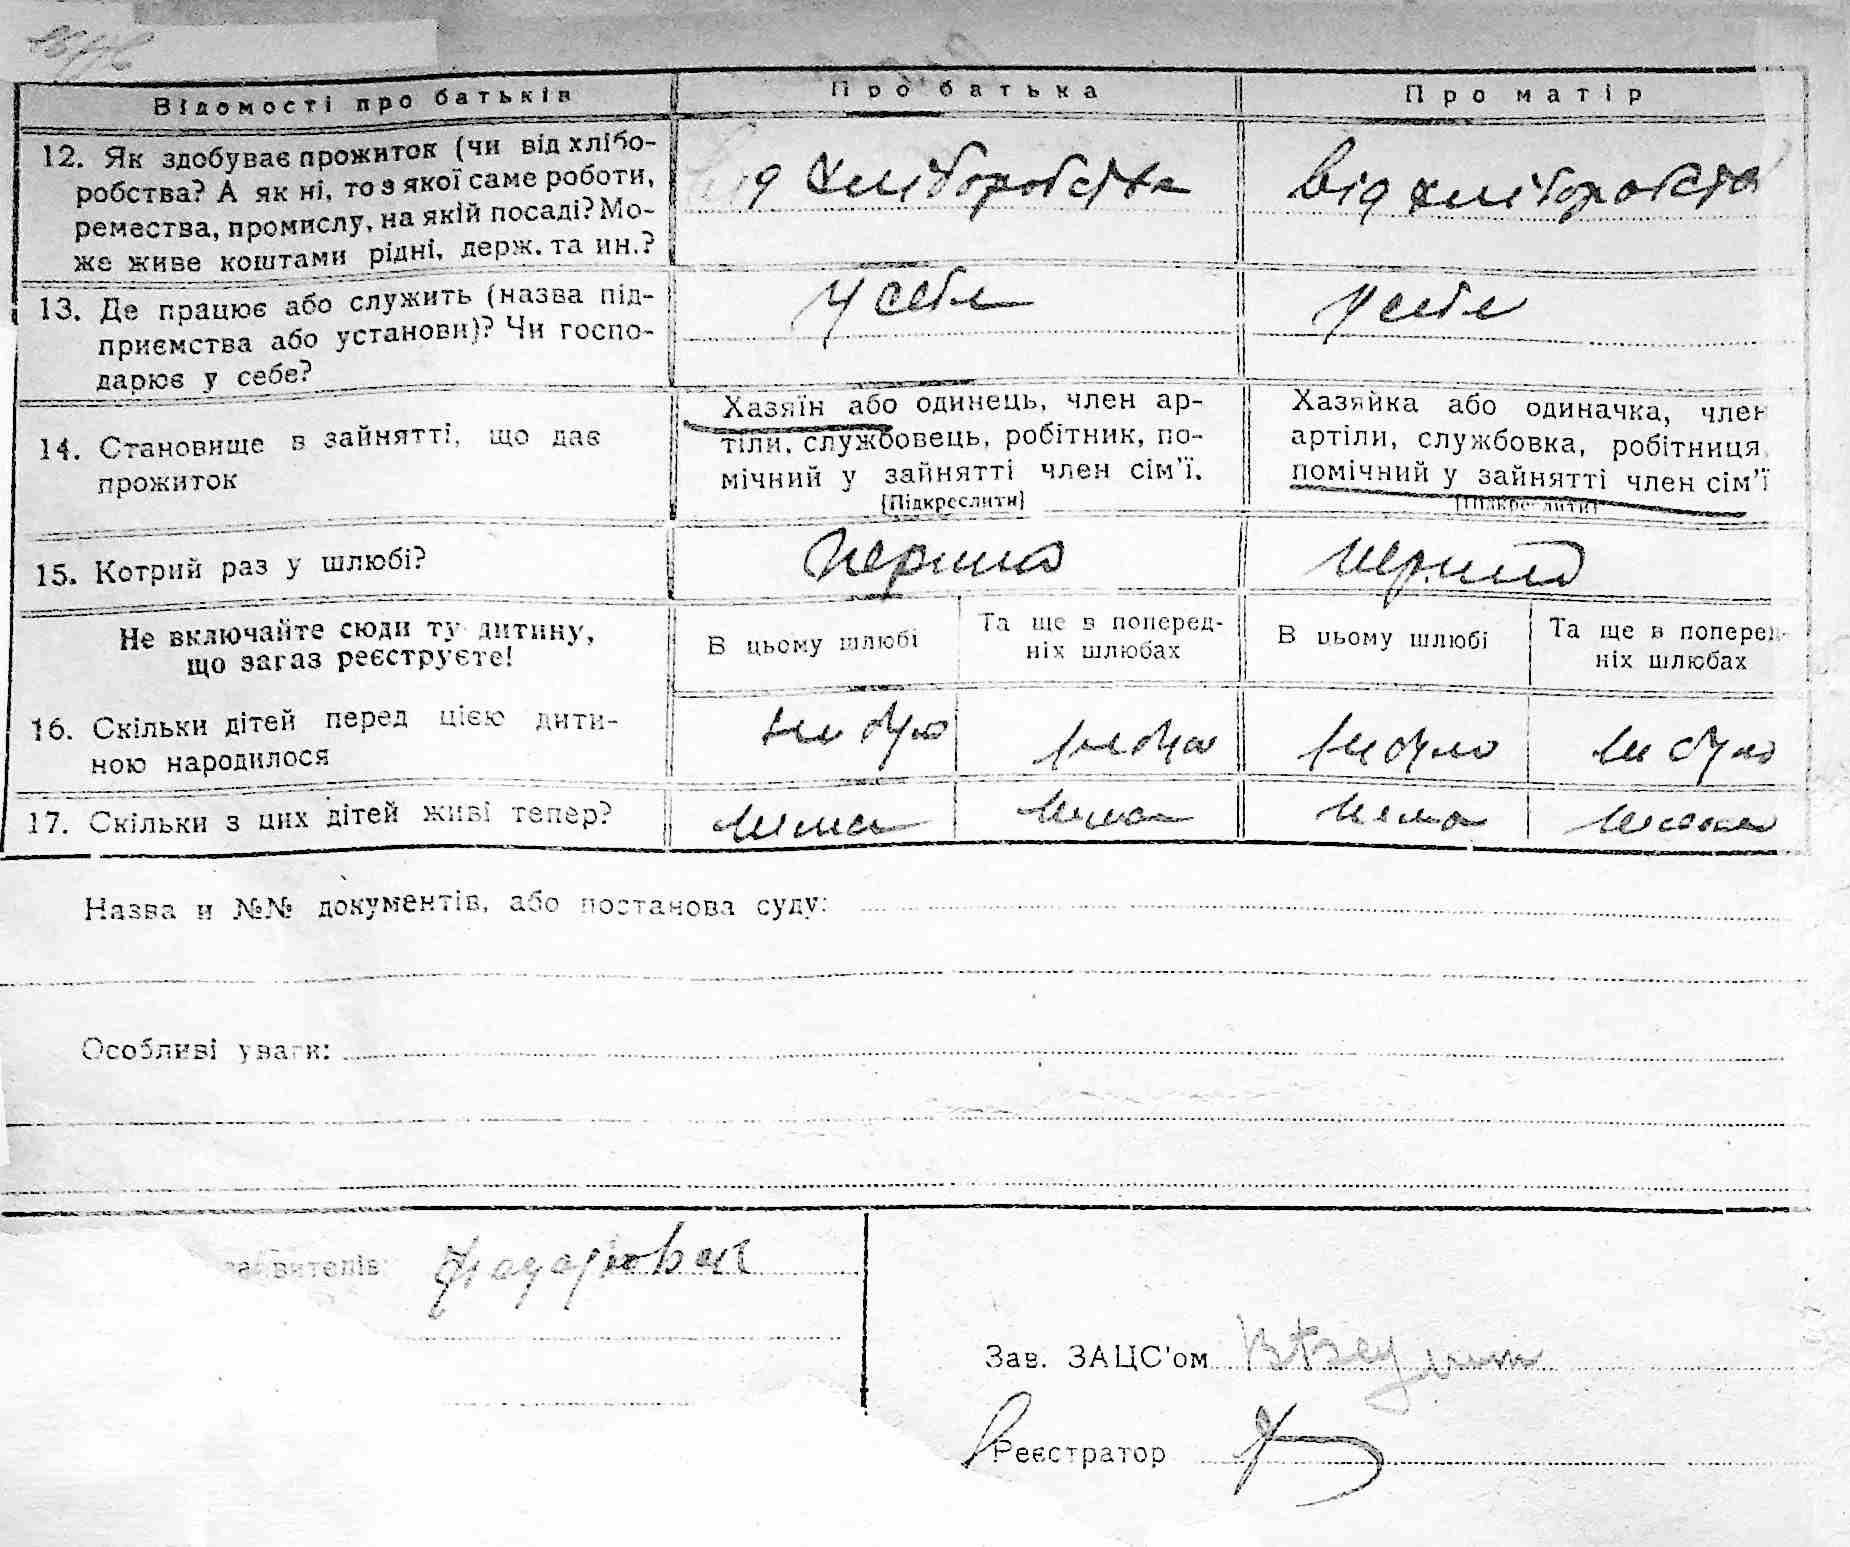 Відомості про батьків Про батька Про матір
12. Як здобуває прожиток (чи від хлібо-
робства? А як ні, то з якої саме роботи,
ремества, промислу, на якій посаді? Мо-
же живе коштами рідні, держ. та ин.?
від хліборобства від хліборобства
13. Де працює або служить (назва під-
приємства або установи)? Чи госпо-
дарює у себе?
у себе у себе
14. Становище в зайнятті, що дає
прожиток
Хазяїн або одинець, член ар-
тіли, службовець, робітник, по-
мічний у зайнятті член сім'ї.
(Підкреслити)
Хазяйка або одиначка, член
артіли, службовка, робітниця,
помічний у зайнятті член сім'ї
(Підкреслити)
15. Котрий раз у шлюбі?
перший перший
Не включайте сюди ту дитину,
що загаз реєструєте!
В цьому шлюбі
Та ще в поперед-
ніх шлюбах
В цьому шлюбі
Та ще в поперед-
ніх шлюбах
16. Скільки дітей перед цією дити-
ною народилося
не було не було не було не було
17. Скільки з цих дітей живі тепер?
нема нема нема нема
Назва и №№ документів, або постанова суду:
Особливі уваги:
заявителів:
Зав. ЗАЦС'ом
Реєстратор